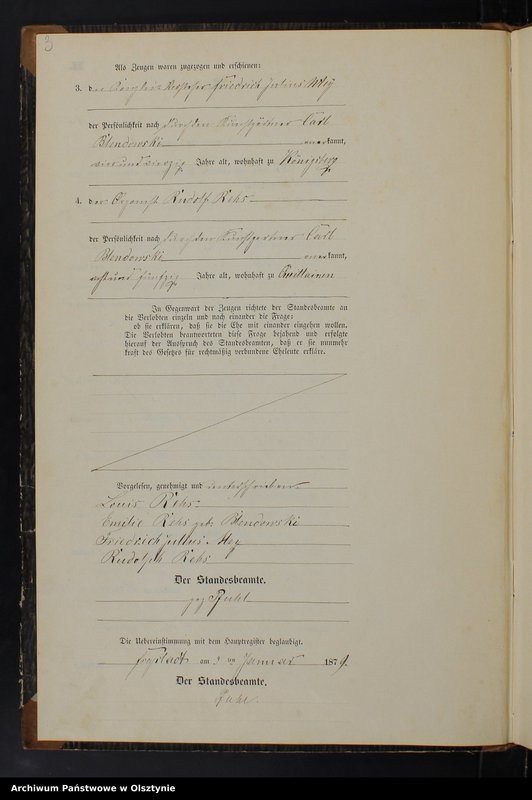 3
Als Zeugen waren zugezogen und erschienen:
3. der Friedrich Julius Mey
der Persönlichkeit nach durch den Kunstgärtner Carl
Blendowski anerkannt,
vierundvierzig Jahre alt, wohnhaft zu Königsberg
4. der Organist Rudolf Rehs
der Persönlichkeit nach durch den Kunstgärtner Carl
Blendowski anerkannt,
achtundfünfzig Jahre alt, wohnhaft zu Quittainen
In Gegenwart der Zeugen richtete der Standesbeamte an
die Verlobten einzeln und nach einander die Frage:
ob sie erklären, daß sie die Ehe mit einander eingehen wollen.
Die Verlobten beantworteten diese Frage bejahend und erfolgte
hierauf der Ausspruch des Standesbeamten, daß er sie nunmehr
kraft des Gesetzes für rechtmäßig verbundene Eheleute erkläre.
Vorgelesen, genehmigt und unterschrieben
Louis Rehs
Emilie Rehs geb. Blendowski
Friedrich Julius Mey
Rudolph Rehs
Der Standesbeamte.
gez
Die Uebereinstimmung mit dem Hauptregister beglaubigt.
am 3 ten Januar 1879.
Der Standesbeamte.
Archiwum Państwowe w Olsztynie